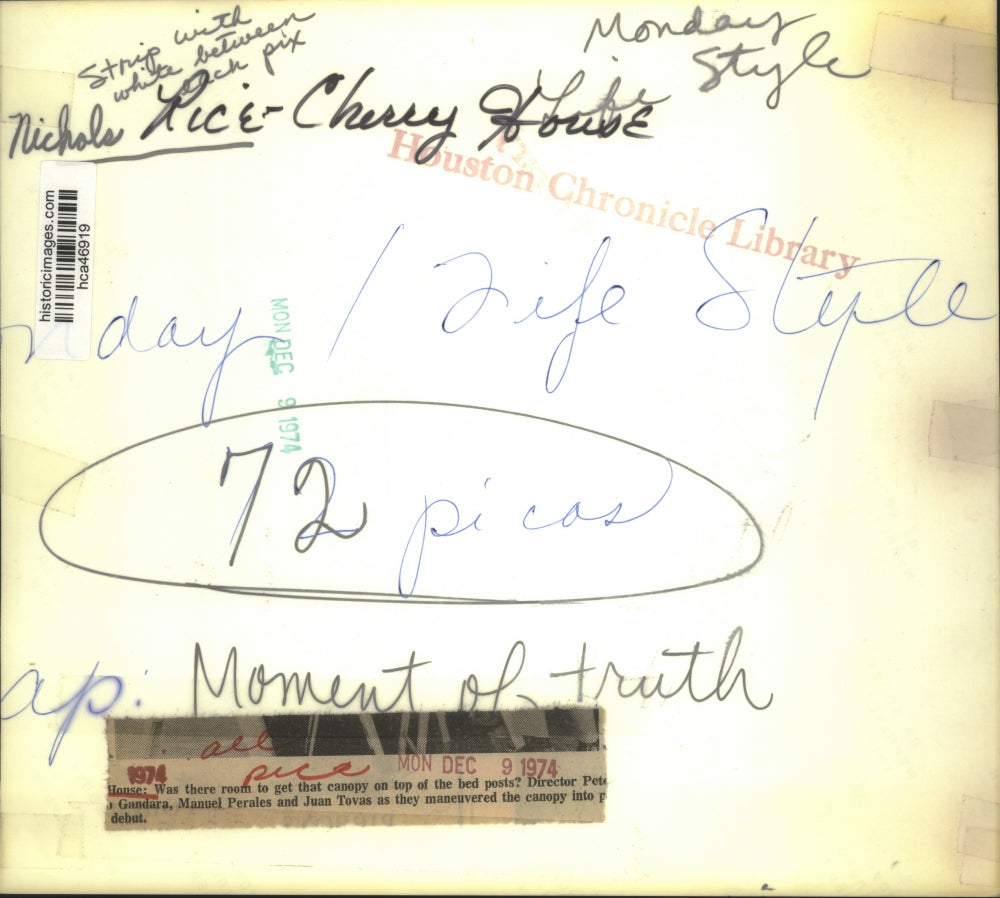 Strip with
white between
each pix
Monday
Life Style
Nichols Rice-Cherry House
Houston Chronicle Library
historicimages.com
hca46919
day / Life Style
MON DEC 9 1974
72 picas
ap: Moment of truth
all
pics
1974
MON DEC 9 1974
House: Was there room to get that canopy on top of the bed posts? Director Pete
Gandara, Manuel Perales and Juan Tovas as they maneuvered the canopy into p
debut.